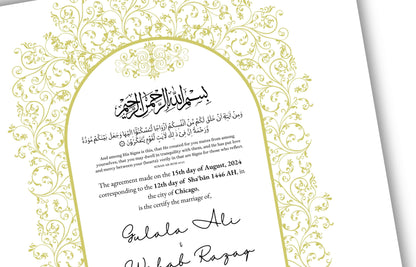 بِسْمِ اللهِ الرَّحْمٰنِ الرَّحِيْمِ
وَمِنْ آيَاتِهِ أَنْ خَلَقَ لَكُم مِّنْ أَنفُسِكُمْ أَزْوَاجًا لِّتَسْكُنُوا إِلَيْهَا وَجَعَلَ بَيْنَكُم مَّوَدَّةً
وَرَحْمَةً إِنَّ فِي ذَٰلِكَ لَآيَاتٍ لِّقَوْمٍ يَتَفَكَّرُونَ
And among His Signs is this, that He created for you mates from among
yourselves, that you may dwell in tranquility with them, and He has put love
and mercy between your (hearts): verily in that are Signs for those who reflect.
The agreement made on the 15th day of August, 2024
corresponding to the 12th day of Sha'bān 1446 AH, in
the city of Chicago,
is the certify the marriage of,
Gulala Ali
&
Wahab Razaq